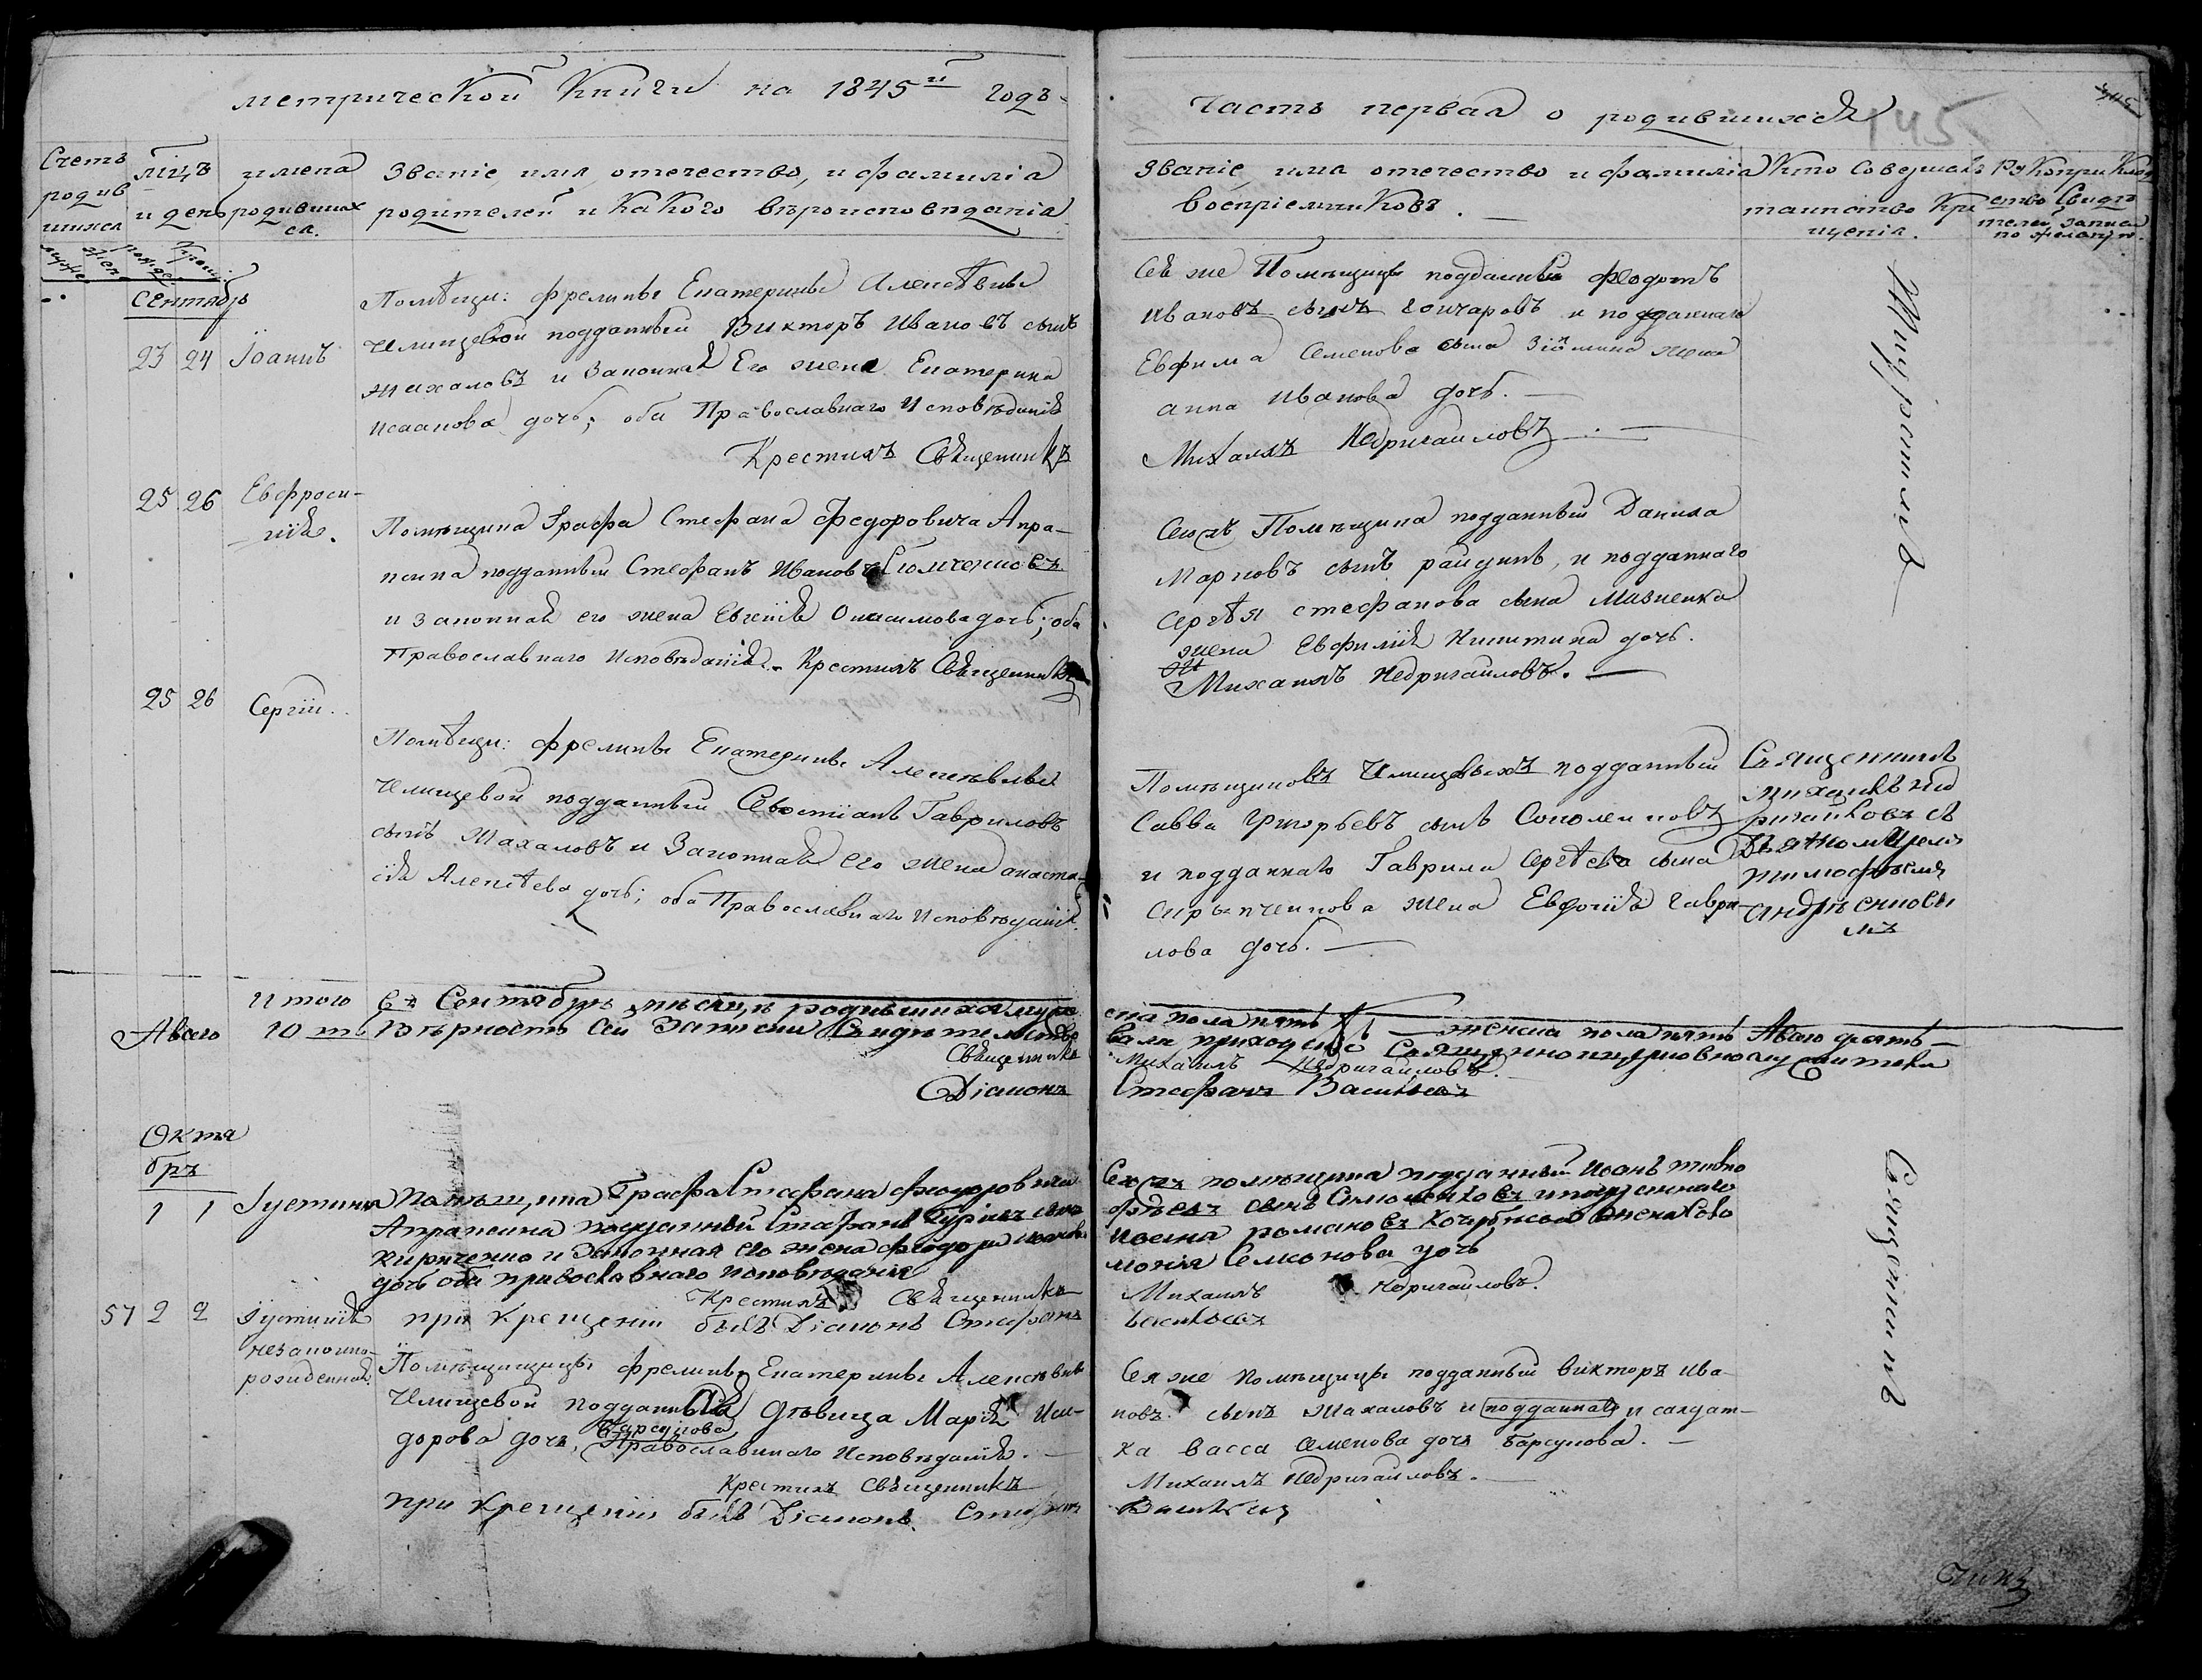 метрической Книги на 1845й годъ.
Счетъ родившихся
мца и день
имена родившихся.
званіе, имя, отечество, и фамиліа родителей и Какого вѣроисповѣданіа
Сентябрь
23 24 Іоаннъ
Помѣщи: фрелины Екатерины Алексѣевны
Челищевой подданный Викторъ Ивановъ сынъ
Махаловъ и Законная Его жена Екатерина
Исаакова дочь; оба Православнаго Исповѣданія
Крестилъ Священникъ
25 26 Евфроси-
нія.
Помѣщика Графа Стефана Федоровича Апра-
ксина подданный Стефанъ Ивановъ
и законная его жена Евгенія Онисимова дочь; оба
Православнаго Исповѣданія. Крестилъ Священникъ
25 26 Сергій.
Помѣщи: фрелины Екатерины Алексѣевны
Челищевой подданный Севостіанъ Гавриловъ
сынъ Махаловъ и Законная его жена анаста-
сія Алексѣева дочь; оба Православнаго Исповѣданія.
Итого въ Сентябрѣ мѣсяцѣ родившихся муже
Авсего 10 ть Вѣрность сей Записки Свидѣтельство
Священникъ
Діаконъ
Октя
брь
1 1 Іустина
Помѣщика Графа Стефана феодоровича
Апраксина подданный Стефанъ сынъ
Кириченко и Законная его жена феодора
дочь оба православнаго исповѣданія
Крестилъ Священникъ
при крещеніи былъ Діаконъ Стефанъ
57 2 2 Іустинія
незаконно-
рожденная.
Помѣщицы фрелины Екатерины Алексѣевны
Челищевой подданная дѣвица Марія Иси-
дорова дочь, Барсукова
Православнаго Исповѣданія.
Крестилъ Священникъ
При Крещеніи былъ Діаконъ Стефанъ
Часть первая о родившихся
145
Званіе, имя отечество и фамиліа Воспріемниковъ.
Кто Совершалъ таинство Крещенія.
Рукоприкладство Свидѣтелей записи по желанію.
Сей же Помѣщицы подданный Федотъ
Ивановъ сынъ Гончаровъ и подданнаго
Евфима Семенова сына жена
анна Иванова дочь.
Михаилъ Недригайловъ.
Сегожъ Помѣщика подданный Данила
Марковъ сынъ, и подданнаго
Сергѣя стефанова сына Мизненка
жена Евфимія Никитина дочь.
Михаилъ Недригайловъ.
Помѣщиковъ Челищевыхъ подданный
Савва Григорьевъ сынъ
и подданнаго Гаврила Сергѣева сына
жена Евдокія Гаври-
лова дочь.
Священникъ
Михаилъ Нед
ригайловъ съ
Тимофеемъ
ска пола пять женска пола пять Авсего десять
вали приходскіе Священно и церковно служители
Михаилъ Недригайловъ.
Стефанъ Васильевъ
Сегожъ помѣщика подданный Иоанъ тимо
феевъ сынъ и подданнаго
Иоанна романовъ жена
Семионова дочь
Михаилъ Недригайловъ.
Васильевъ
Сея же Помѣщицы подданный Викторъ Ива-
новъ сынъ Махаловъ и подданная и салдат-
ка васса Семенова дочь Барсукова.
Михаилъ Недригайловъ.
Священникъ